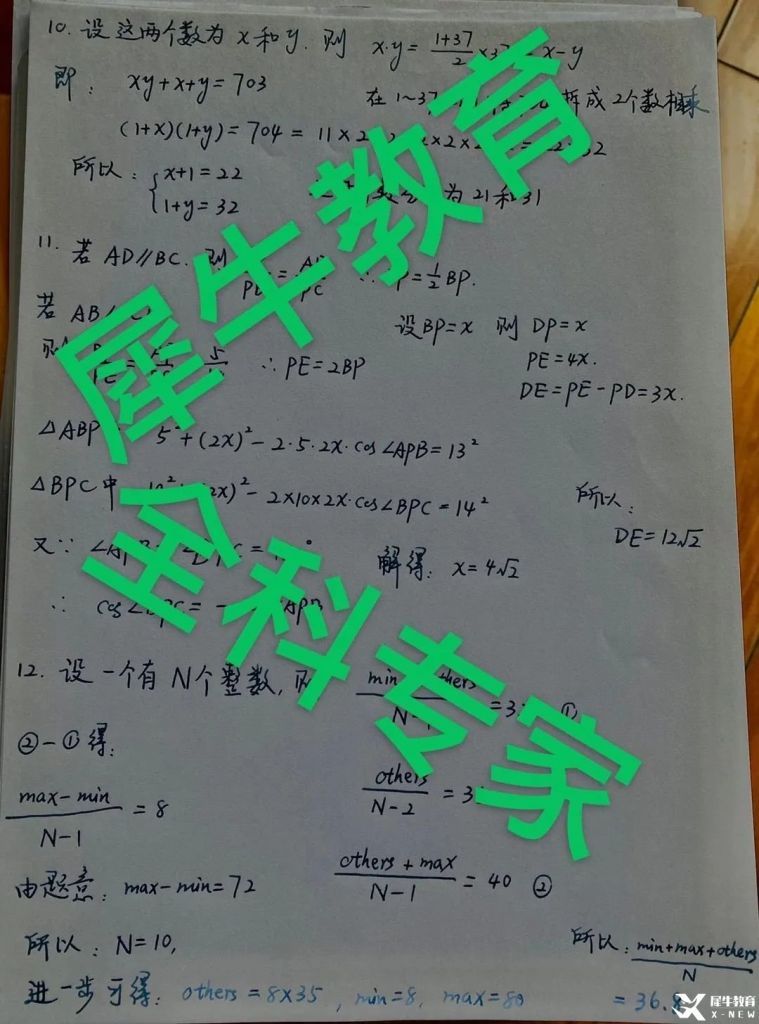 10. 设这两个数为 x 和 y. 则 x·y = (1+37)/2 ×37 x-y
即: xy+x+y=703
在1~37 拆成2个数相乘
(1+x)(1+y)=704=11×2 ×2×2
所以: { x+1=22
1+y=32
为21和31
11. 若 AD∥BC. 则 = ∴ P=1/2 BP.
若 AB
设BP=x 则 DP=x
∴ PE=2BP
PE=4x.
DE=PE-PD=3x.
△ABP 5²+(2x)²-2·5·2x·cos∠APB=13²
△BPC中 2x)²-2×10×2x·cos∠BPC=14²
所以:
DE=12√2
又∵
解得: x=4√2
∴ cos∠BPC=-
12. 设一个有 N个整数, 则 min others / N-1 =3 ①
②-①得:
others / N-2 = 3
max-min / N-1 = 8
others+max / N-1 = 40 ②
由题意: max-min=72
所以: N=10,
所以: min+max+others / N
进一步可得: others=8×35, min=8, max=80
=36.8
犀牛教育
全科专家
犀牛教育
X-NEW